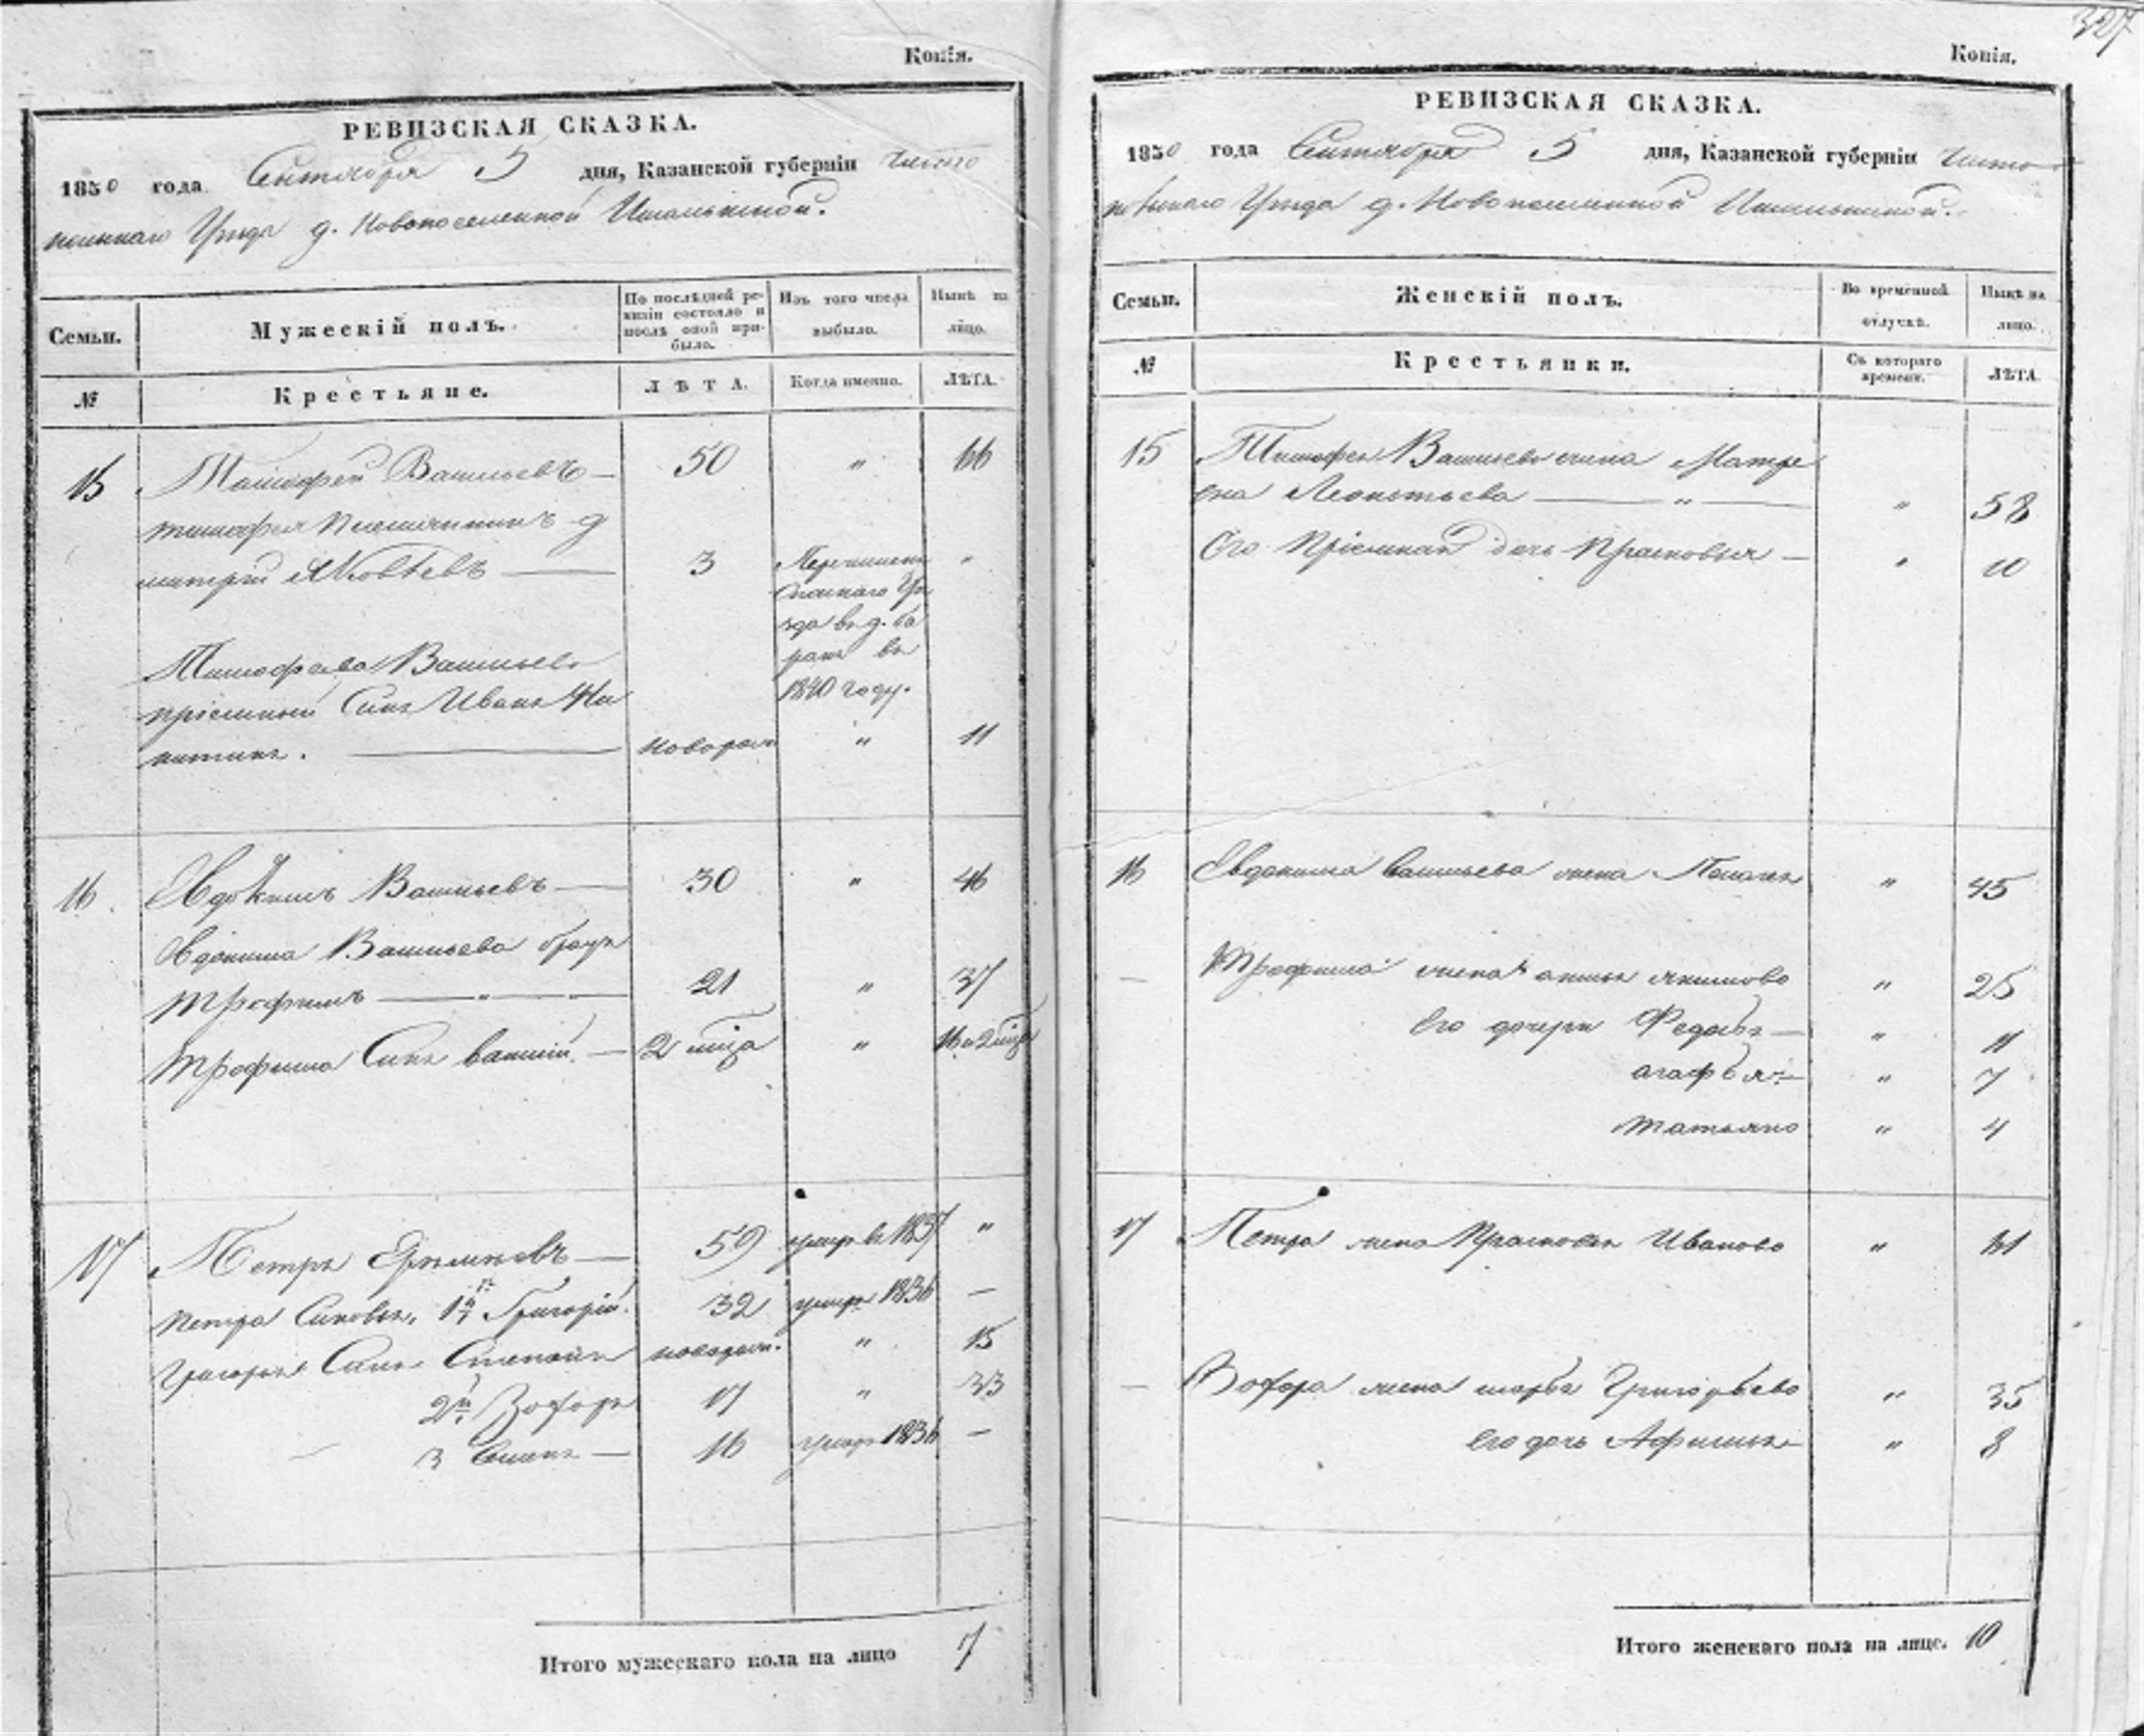 327
Копія.
РЕВИЗСКАЯ СКАЗКА.
1850 года Сентября 5 дня, Казанской губерніи Чисто
польскаго Уезда д. Новопоселенной
Семьи.
Мужескій полъ.
По послѣдней ре-
визіи состояло и
послѣ оной при-
было.
Изъ того числа
выбыло.
Нынѣ на
лицо.
№
Крестьяне.
ЛѢТА.
Когда именно.
ЛѢТА.
15 Тимофей Васильевъ 50 " 66
Тимофея племянникъ Д
митрій Яковлевъ 3 "
Перечислен
Уе
зда въ д.
въ
1840 году.
Тимофея Васильева
пріемный Сынъ Иванъ Ни
китинъ. новорож " 11
16 Евдокимъ Васильевъ 30 " 46
Евдокима Васильева братъ
Трофимъ " 21 " 37
Трофима Сынъ Василій 2 мѣца " 16 и 2 мѣца
17 Петръ 59 умеръ въ 1837 "
Петра Сыновья, 1й Григорій 32 умеръ 1836 —
Григорья Сынъ Степанъ новорож. " 15
2й Зохоръ 17 " 33
3 Семенъ 16 умеръ 1836 —
Итого мужескаго пола на лицо 7
Копія.
РЕВИЗСКАЯ СКАЗКА.
1850 года Сентября 5 дня, Казанской губерніи Чисто
польскаго Уезда д. Новопоселенной
Семьи.
Женскій полъ.
Во временной
отлускѣ.
Нынѣ на
лицо.
№
Крестьянки.
Съ котораго
времени.
ЛѢТА.
15 Тимофея Васильева жена Матре
на Леонтьева " " 58
Его Пріемная дочь Прасковья " 10
16 Евдокима Васильева жена Пелагея " 45
Трофима жена Акимова " 25
Его дочери Федосья " 11
Агафья " 7
Татьяна " 4
17 Петра жена Прасковья Иванова " 61
Зохора жена Марфа Григорьева " 35
его дочь Афимья " 8
Итого женскаго пола на лицо. 10